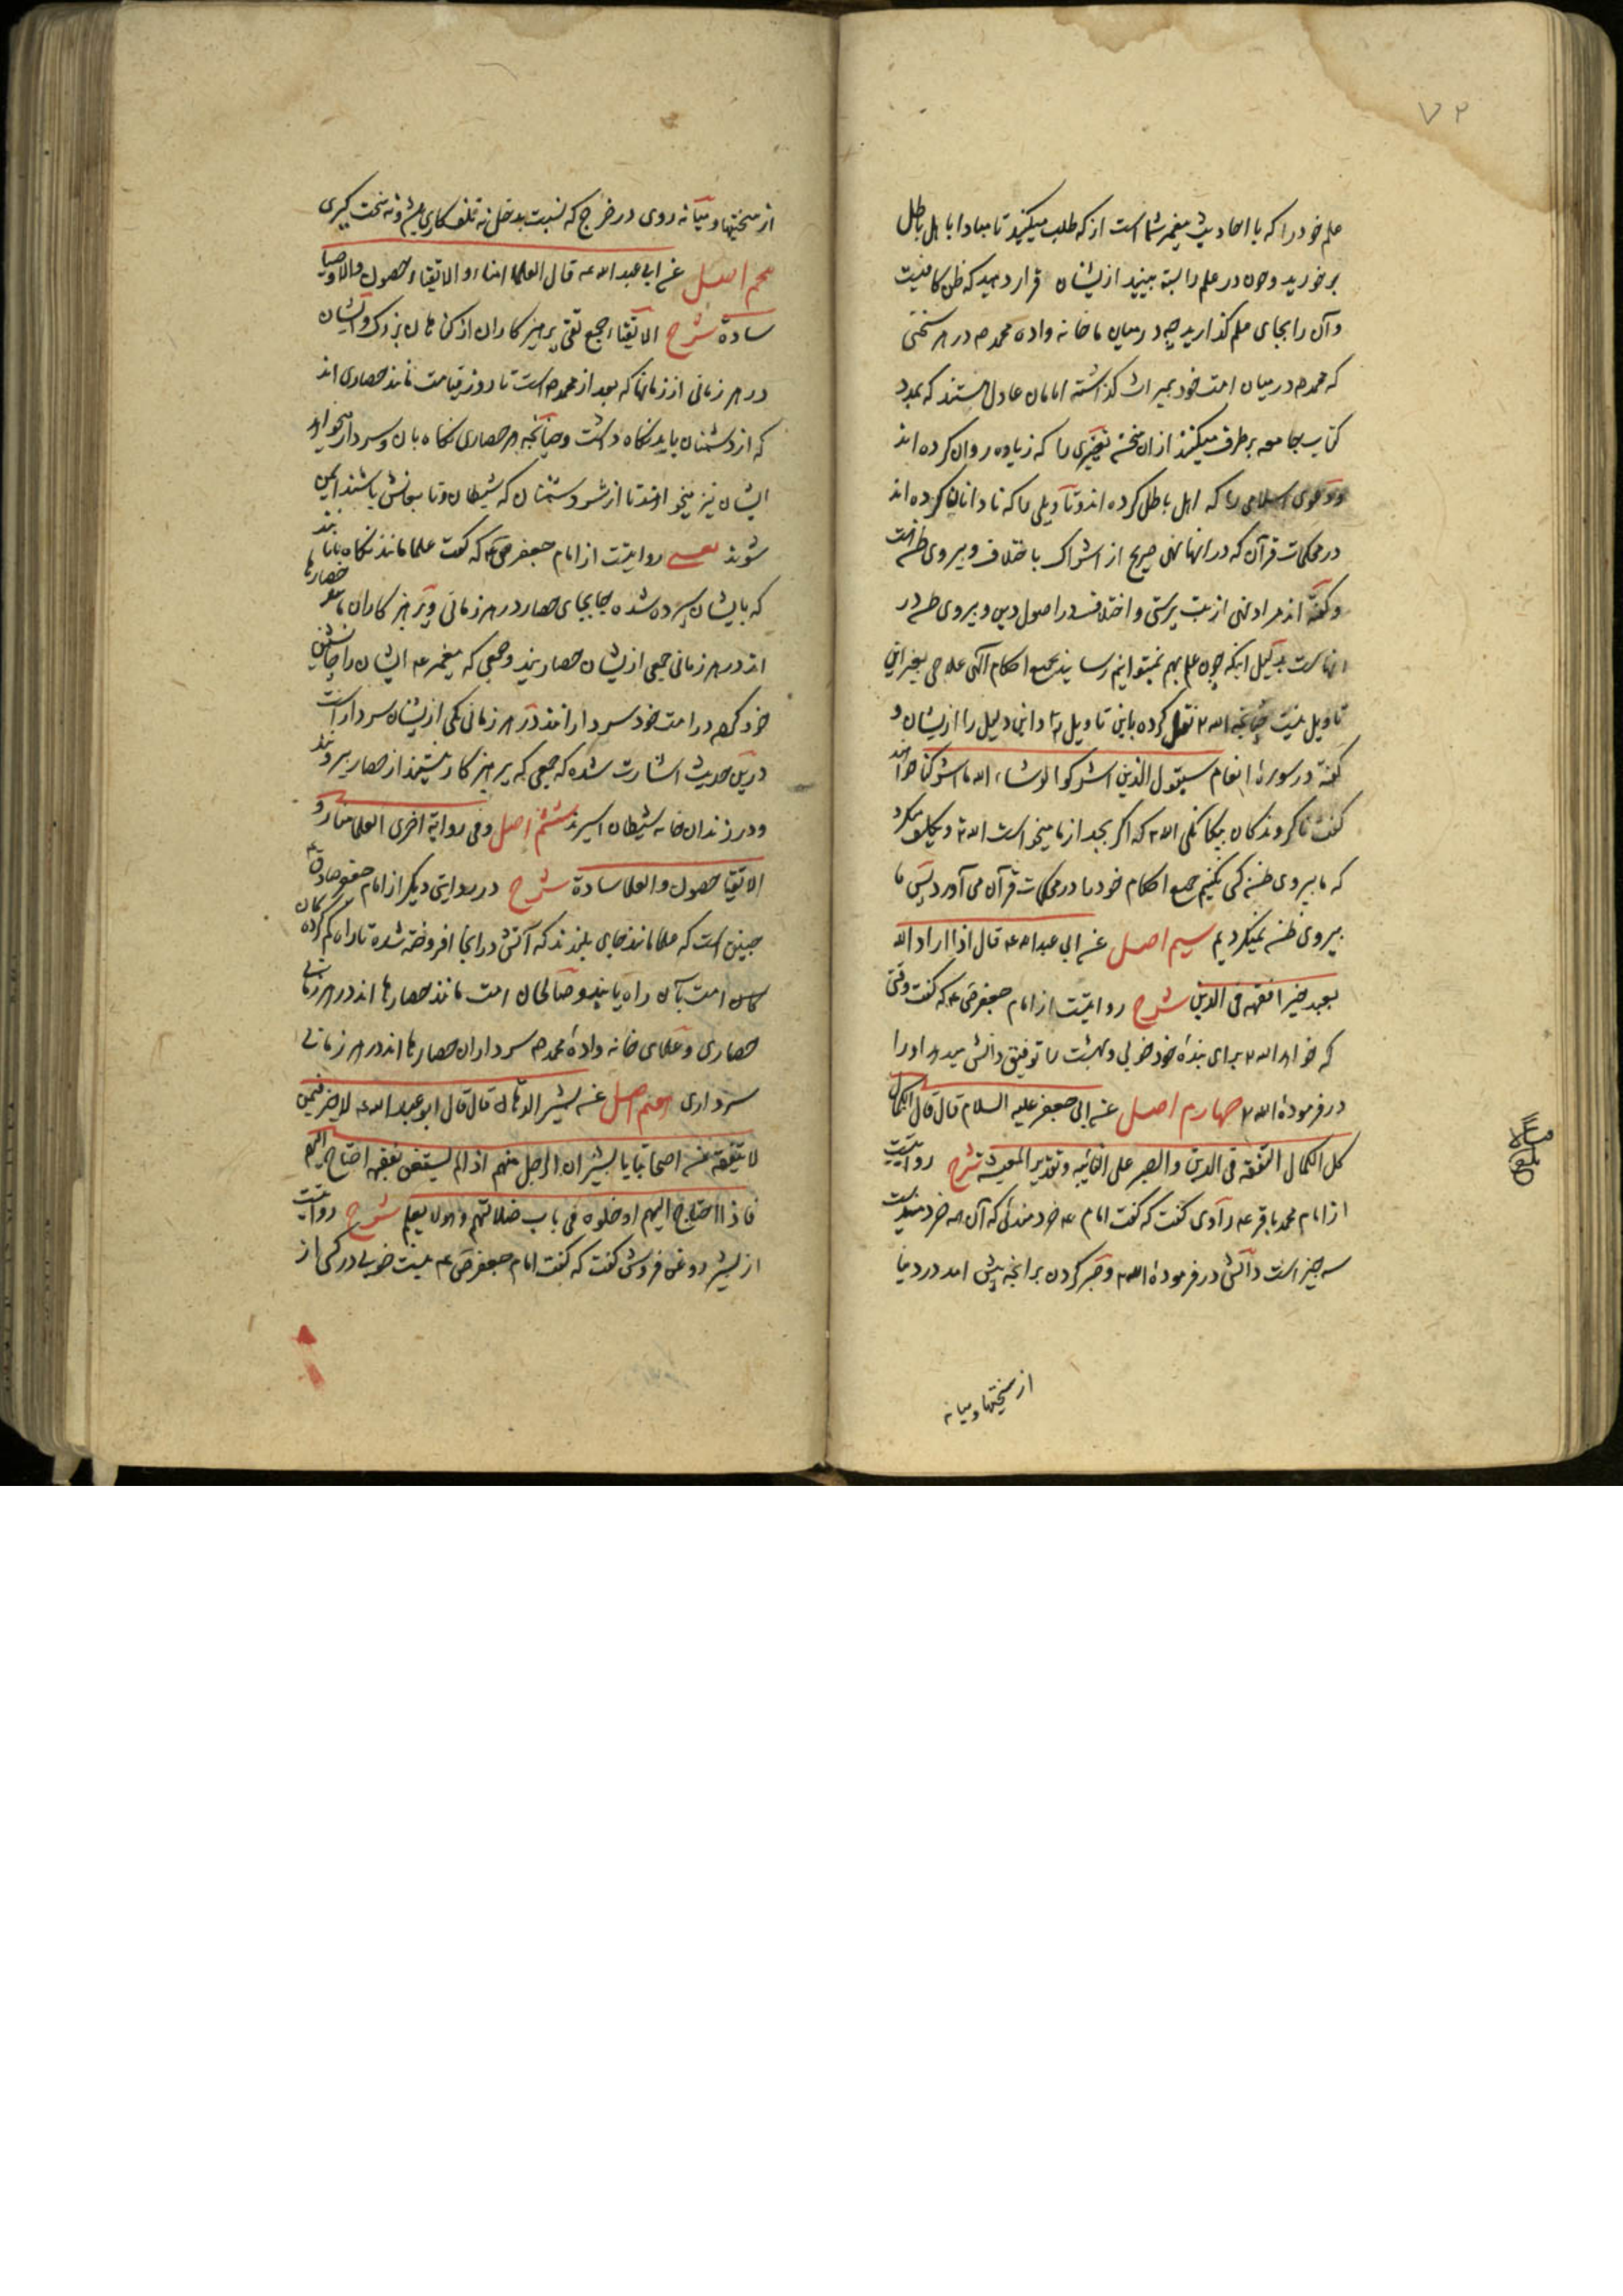 ۷۲
علم خود را که با احادیث پیغمبر شما است از که طلب میکنید تا مبادا با اهل باطل
برخورید و چون در علم را بسته بینید از یشان قرار دهید که ظن کافیست
و آن را بجای علم گذارید چه در میان ما خانه واده محمد ص در هر سختی
که محمد ص در میان امت خود بمیراث گذاشته امامان عادل هستند که بمدد
کتاب جامعه برطرف میکنند از ان سخن تغییری را که زیاده روان کرده اند
و دعوی اسلامی را که اهل باطل کرده اند و تاویلی را که نادانان کرده اند
در محکمات قرآن که در انها نهی صریح از اشراک باختلاف و پیروی ظن هست
و گفته اند مراد نهی از بت پرستی و اختلاف در اصول دین و پیروی ظن در
انهاست بدلیل اینکه چون علم بهم نمیتوانیم رسانید بجمیع احکام الهی علاجی بغیر این
تاویل نیست چنانچه الله ۲ نقل کرده باین تاویل را و این دلیل را از یشان و
گفته در سورهٔ انعام سیقول الذین اشرکوا لو شاء الله ما اشرکنا خواهند
گفت ناگروندگان بیگانگی الله ۲ که اگر بجد از ما میخواست الله ۲ و تکلیف میکرد
که ما پیروی ظن کسی نکنیم جمیع احکام خود را در محکمات قرآن می آورد پس ما
پیروی ظن نمیکردیم سیم اصل عن ابی عبد الله ع قال اذا اراد الله
بعبد خیرا فقهه فی الدین شرح روایتست از امام جعفر ص ع که گفت وقتی
که خواهد الله ۲ برای بندهٔ خود خوبی و بهشت را توفیق دانش میدهد او را
در فرمودهٔ الله ۲ چهارم اصل عن ابی جعفر علیه السلام قال قال الکمال
کل الکمال التفقه فی الدین و الصبر علی النائبه و تقدیر المعیشة شرح روایتست
از امام محمد باقر ع راوی گفت که گفت امام ع خردمندی که آن همه خردمندیست
سه چیز است دانش در فرمودهٔ الله ۲ و صبر کردن بر انچه پیش امد در دنیا
از سختیها و میانه
از سختیها و میانه روی در خرج که نسبت بدخل نه تلف کاری باشد و نه سخت گیری
پنجم اصل عن ابی عبد الله ع قال العلما امناء و الاتقیاء حصون و الاوصیا
سادة شرح الاتقیاء جمع تقی پرهیزکاران از گناهان بزرگ و ایشان
در هر زمانی از زمانها که بعد از محمد ص است تا روز قیامت مانند حصاری اند
که از دشمنان باید نگاه داشت و چنانچه هر حصاری نگاه بان و سردار میخواهد
ایشان نیز میخواهند تا از شر دشمنان که شیطان و تابعانش باشند ایمن
شوند یعنی روایتست از امام جعفر ص ع که گفت علما مانند نگاه بانانند
که بایشان سپرده شده بجابجای حصار در هر زمانی و پرهیزکاران مانند حصارها
اند در هر زمانی جمعی از یشان حصاریند و جمعی که پیغمبر ع ایشان را جانشین
خود کرده در امت خود سردارانند در هر زمانی یکی از یشان سردار است
درین حدیث اشارت شده که جمعی که پرهیزکار نیستند از حصار بیرونند
و در زندان خانه شیطان اسیرند ششم اصل و فی روایة اخری العلما منار و
الاتقیا حصون و العلما سادة شرح در روایتی دیگر از امام جعفر صادق ع
چنین است که علما مانند جای بلندند که آتش در انجا افروخته شده تا راه گم کرده
کان امت بآن راه یابند و صالحان امت مانند حصارها اند در هر زمانی
حصاری و علمای خانه وادهٔ محمد ص سرداران حصارها اند در هر زمانی
سرداری هفتم اصل عن بشیر الدهان قال قال ابو عبد الله ع لا خیر فیمن
لا یتفقه من اصحابنا یا بشیر ان الرجل منهم اذا لم یستغن بفقهه احتاج الیهم
فاذا احتاج الیهم ادخلوه فی باب ضلالتهم و هو لا یعلم شرح روایتست
از بشیر روغن فروش گفت که گفت امام جعفر ص ع نیست خوبی در کسی از